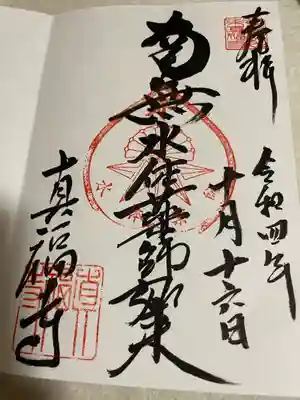 奉拝
令和四年
十月十六日
南無水体薬師如来
真福寺